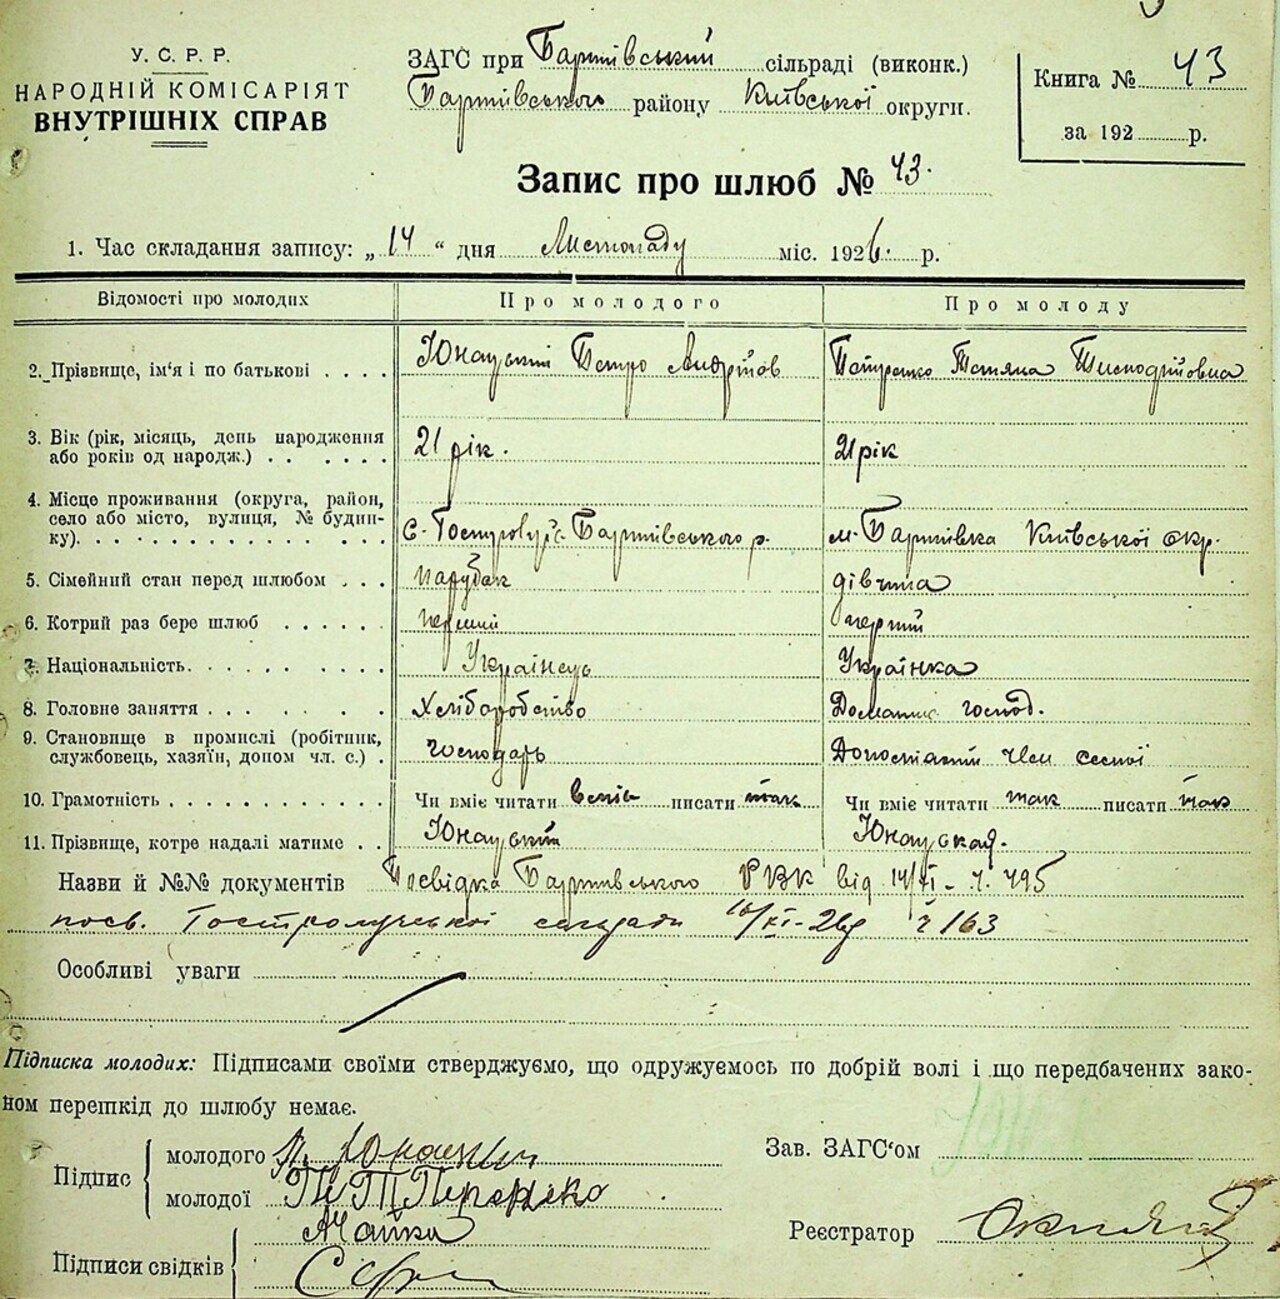 У. С. Р. Р.
НАРОДНІЙ КОМІСАРІЯТ
ВНУТРІШНІХ СПРАВ
ЗАГС при Баришівський сільраді (виконк.)
Баришівського району Київської округи.
Книга № 43
за 192 р.
Запис про шлюб № 43.
1. Час складання запису: „14“ дня Листопаду міс. 1926. р.
Відомості про молодих Про молодого Про молоду
2. Прізвище, ім'я і по батькові . . . . Петро Татяна
3. Вік (рік, місяць, день народження
або років од народж.) . . . . . . 21 рік. 21 рік
4. Місце проживання (округа, район,
село або місто, вулиця, № будин-
ку). . . . . . . . . . . . . . . с. Баришівського р. м. Баришівка Київської окр.
5. Сімейний стан перед шлюбом . . . парубок дівчина
6. Котрий раз бере шлюб . . . . . . перший перший
7. Національність. . . . . . . . . . Українець Українка
8. Головне заняття . . . . . . . . Хліборобство Домашнє господ.
9. Становище в промислі (робітник,
службовець, хазяїн, допом чл. с.) . господарь член семьї
10. Грамотність . . . . . . . . . . . . Чи вміє читати писати так Чи вміє читати так писати так
11. Прізвище, котре надалі матиме . .
Назви й №№ документів Посвідка Баришівського РВК від 14/XI - ч. 495
посв. сельради /XI-26р ч 163
Особливі уваги
Підписка молодих: Підписами своїми стверджуємо, що одружуємось по добрій волі і що передбачених зако-
ном перешкід до шлюбу немає.
Підпис
молодого
молодої
Підписи свідків
Зав. ЗАГС'ом
Реєстратор